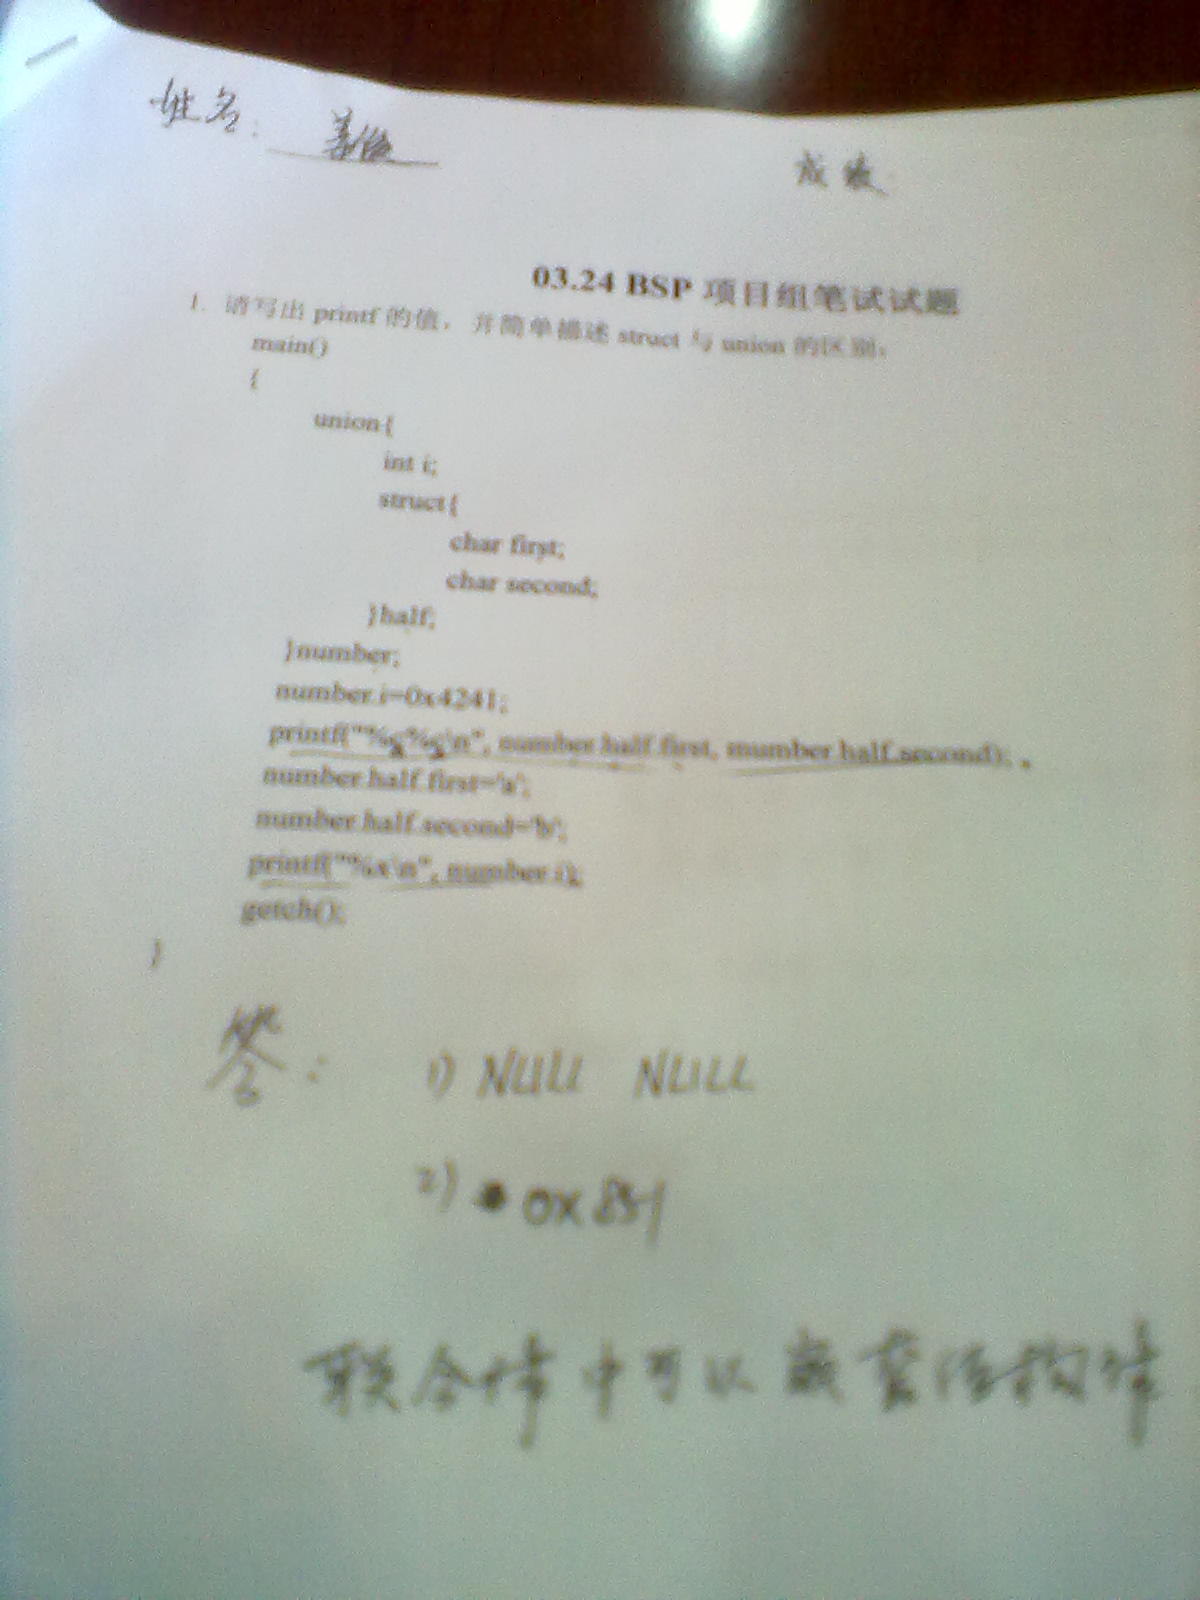 姓名: 姜俊
成绩
03.24 BSP 项目组笔试试题
1. 请写出 printf 的值，并简单描述 struct 与 union 的区别。
main()
{
union{
int i;
struct{
char first;
char second;
}half;
}number;
number.i=0x4241;
printf("%c%c\n", number.half.first, mumber.half.second);
number.half.first='a';
number.half.second='b';
printf("%x\n", number.i);
getch();
}
答: 1) NULL NULL
2) 0x851
联合体中可以嵌套结构体